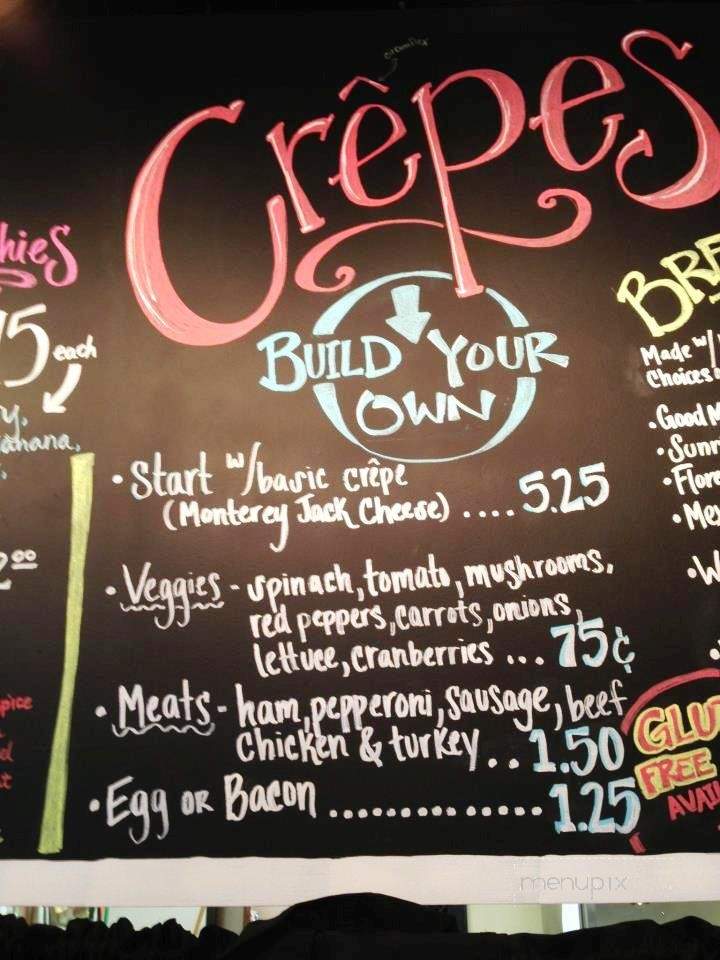 Crêpes
BUILD YOUR
OWN
• Start w/ basic crêpe
(Monterey Jack Cheese) .... 5.25
• Veggies - spinach, tomato, mushrooms,
red peppers, carrots, onions,
lettuce, cranberries ... 75¢
• Meats - ham, pepperoni, sausage, beef
Chicken & turkey .. 1.50
• Egg OR Bacon .............. 1.25
hies
75 each
banana,
2.00
pice
BRE
Made w/
Choices
• Good M
• Sunr
• Flore
• Mex
• W
GLU
FREE
AVAI
menupix